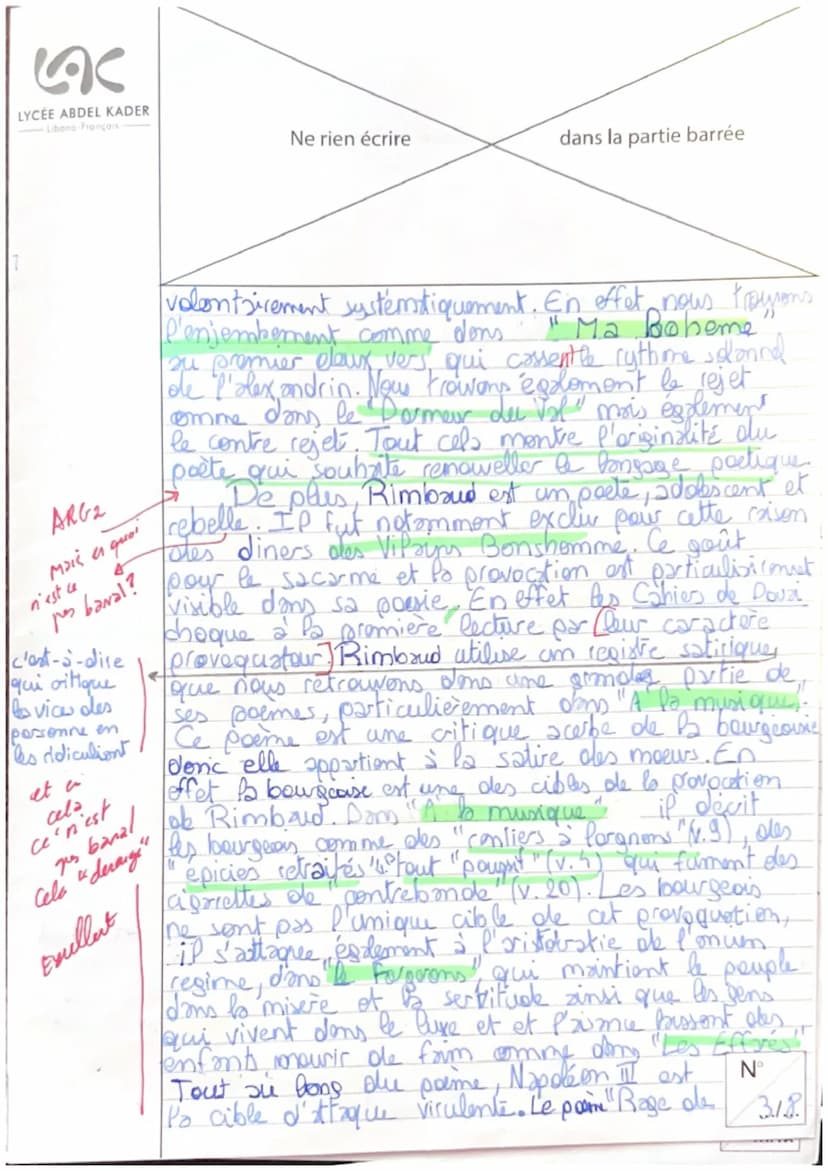 LYCÉE ABDEL KADER
Libano-Français
Ne rien écrire
dans la partie barrée
volontairement systématiquement. En effet nous trouvons
l'enjembement comme dans "Ma Boheme"
au premier deux vers qui cassent le rythme solonnel
de l'alexandrin. Nous trouvons égaloment le rejet
comme dans le "Dormeur du Val" mais également
le contre rejet. Tout cela montre l'originalité du
poète qui souhaite renouveller le langage poetique.
De plus, Rimbaud est un poète, adolescent et
ARG2
rebelle. Il fut notamment exclu pour cette raison
Mais en quoi
n'est ce
pas banal?
des diners des Vilains Bonshomme. Ce goût
pour le sacarme et la provocation est particulièrement
visible dans sa poesie. En effet les Cahiers de Douai
choque à la première lecture par [leur caractère
provoquateur] Rimbaud utilise un registre satirique,
c'est-à-dire
qui critique
les vices des
personne en
les ridiculisent
que nous retrouvons dans une grande partie de
ses poèmes, particulièrement dans "A la musique".
Ce poème est une critique acerbe de la bourgeoisie
donc elle appartient à la satire des moeurs. En
effet la bourgeoisie est une des cibles de la provocation
et en
cela
ce n'est
pas banal
Cela "derange"
de Rimbaud. Dans "A la musique" il décrit
les bourgeois comme des "rentiers à lorgnons" (v.9), des
"epiciers retraités" tout (v.4) qui fument des
cigarettes de "contrebande" (v.20). Les bourgeois
Excellent
ne sont pas l'unique cible de cet provoquation,
il s'attaque également à l'aristocratie de l'ancien
regime, dans "le Forgeron", qui maintient le peuple
dans la misère et la servitude ainsi que les gens
qui vivent dans le luxe et et laissent des
enfants mourir de faim comme dans "Les Effarés"
Tout au long du poème, Napoléon III est
la cible d'attaque virulente. Le poème "Rage de
N°
3/8